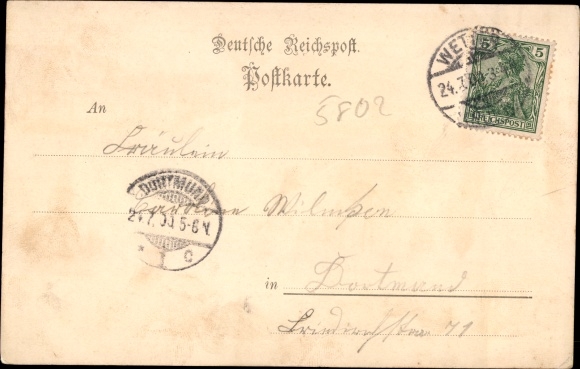 Deutsche Reichspost.
Postkarte.
5 5
REICHSPOST
WETT
24.7.
5802
An
Fräulein
DORTMUND
24.7.00.5-6 N.
* 1 c
Karoline Wilmsen
in Dortmund
Friedrichstraße 71